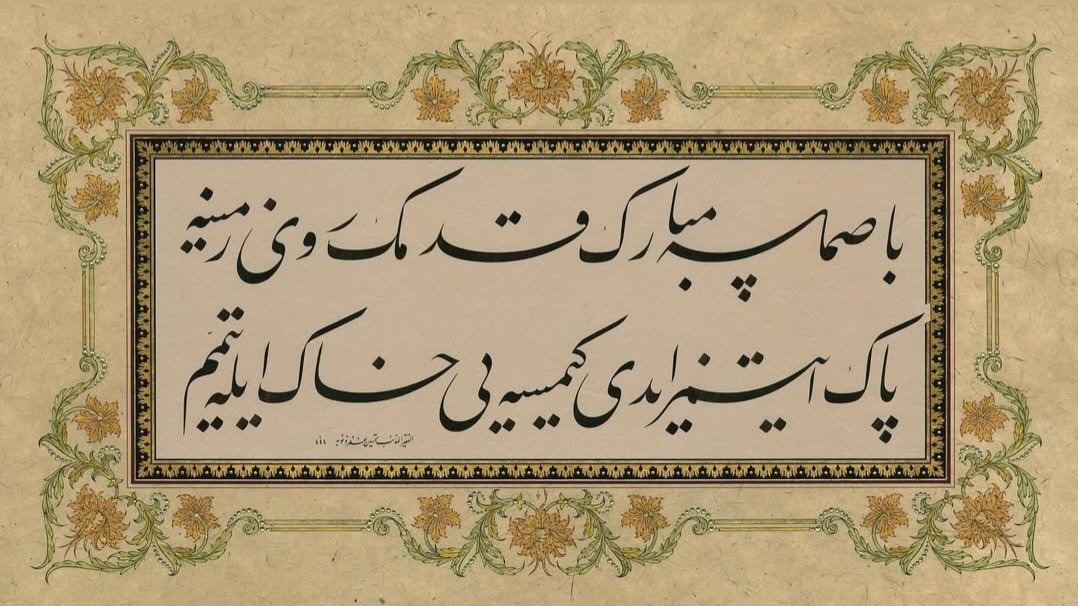 باصمسه مبارک قدمک روی زمینه
پاک ایتمز ایدی کیمسه یی خاک ایله تیمم
الفقیر المذنب تحسین غفر ذنوبه